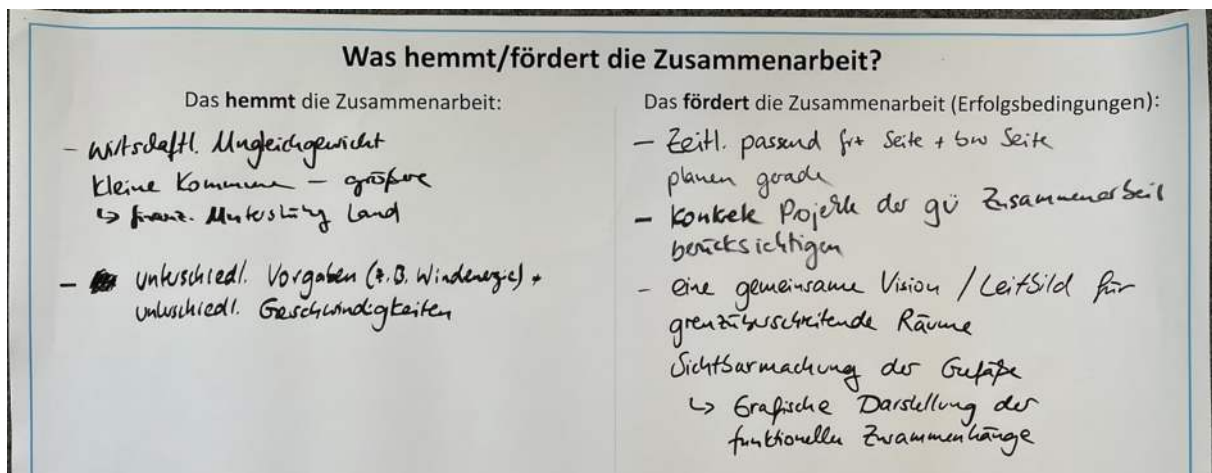 Was hemmt/fördert die Zusammenarbeit?
Das hemmt die Zusammenarbeit:
- Wirtschaftl. Ungleichgewicht
kleine Kommune - größere
↳ franz. Unterstützg Land
- unterschiedl. Vorgaben (z.B. Windenergie) +
unterschiedl. Geschwindigkeiten
Das fördert die Zusammenarbeit (Erfolgsbedingungen):
- Zeitl. passend frz Seite + bw Seite
planen gerade
- Konkrete Projekte der gü Zusammenarbeit
berücksichtigen
- eine gemeinsame Vision / Leitbild für
grenzüberschreitende Räume
Sichtbarmachung der Gefäße
↳ Grafische Darstellung der
funktionellen Zusammenhänge